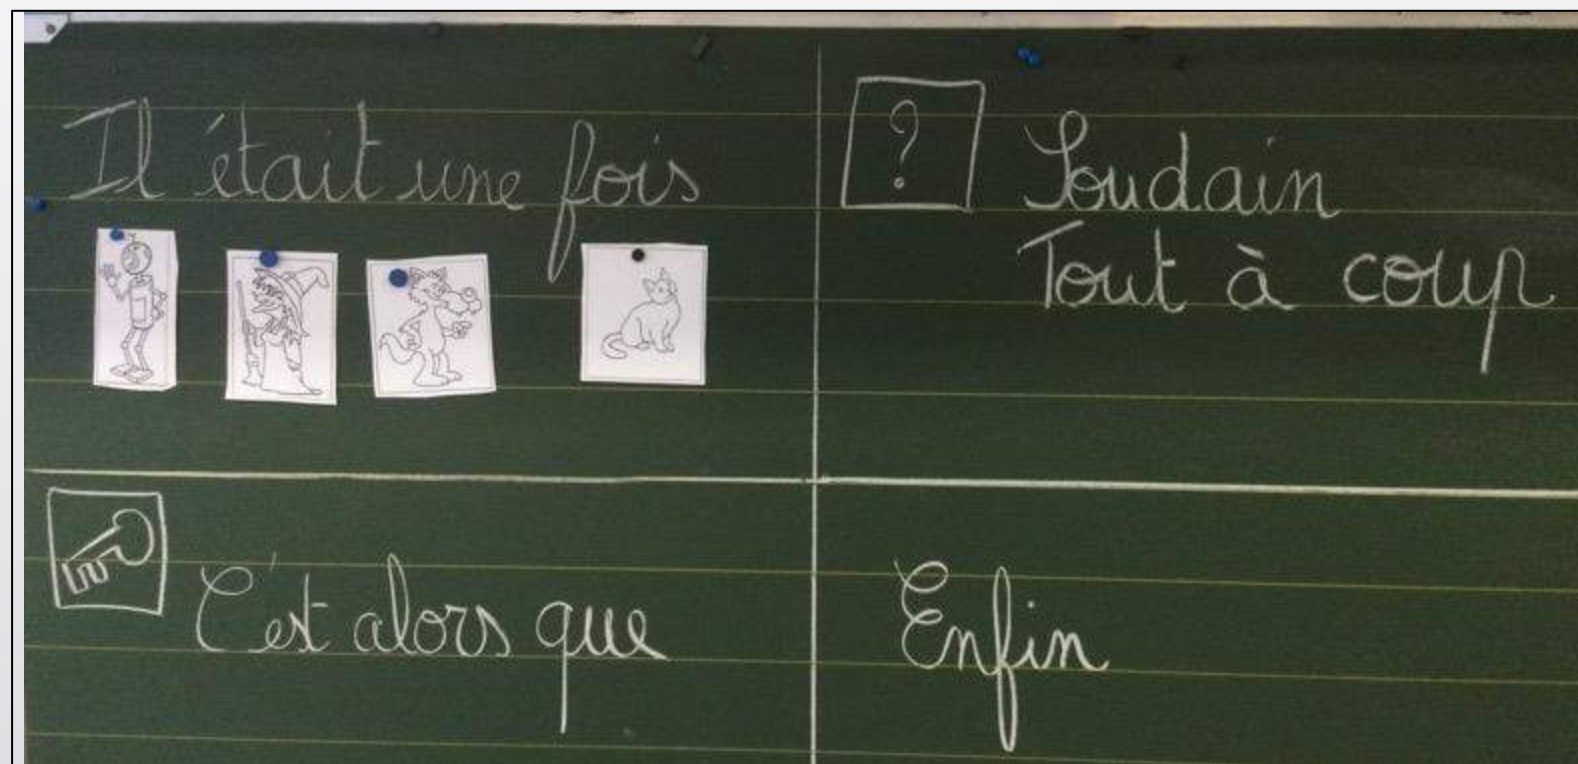 Il était une fois
?
Soudain
Tout à coup
C'est alors que
Enfin